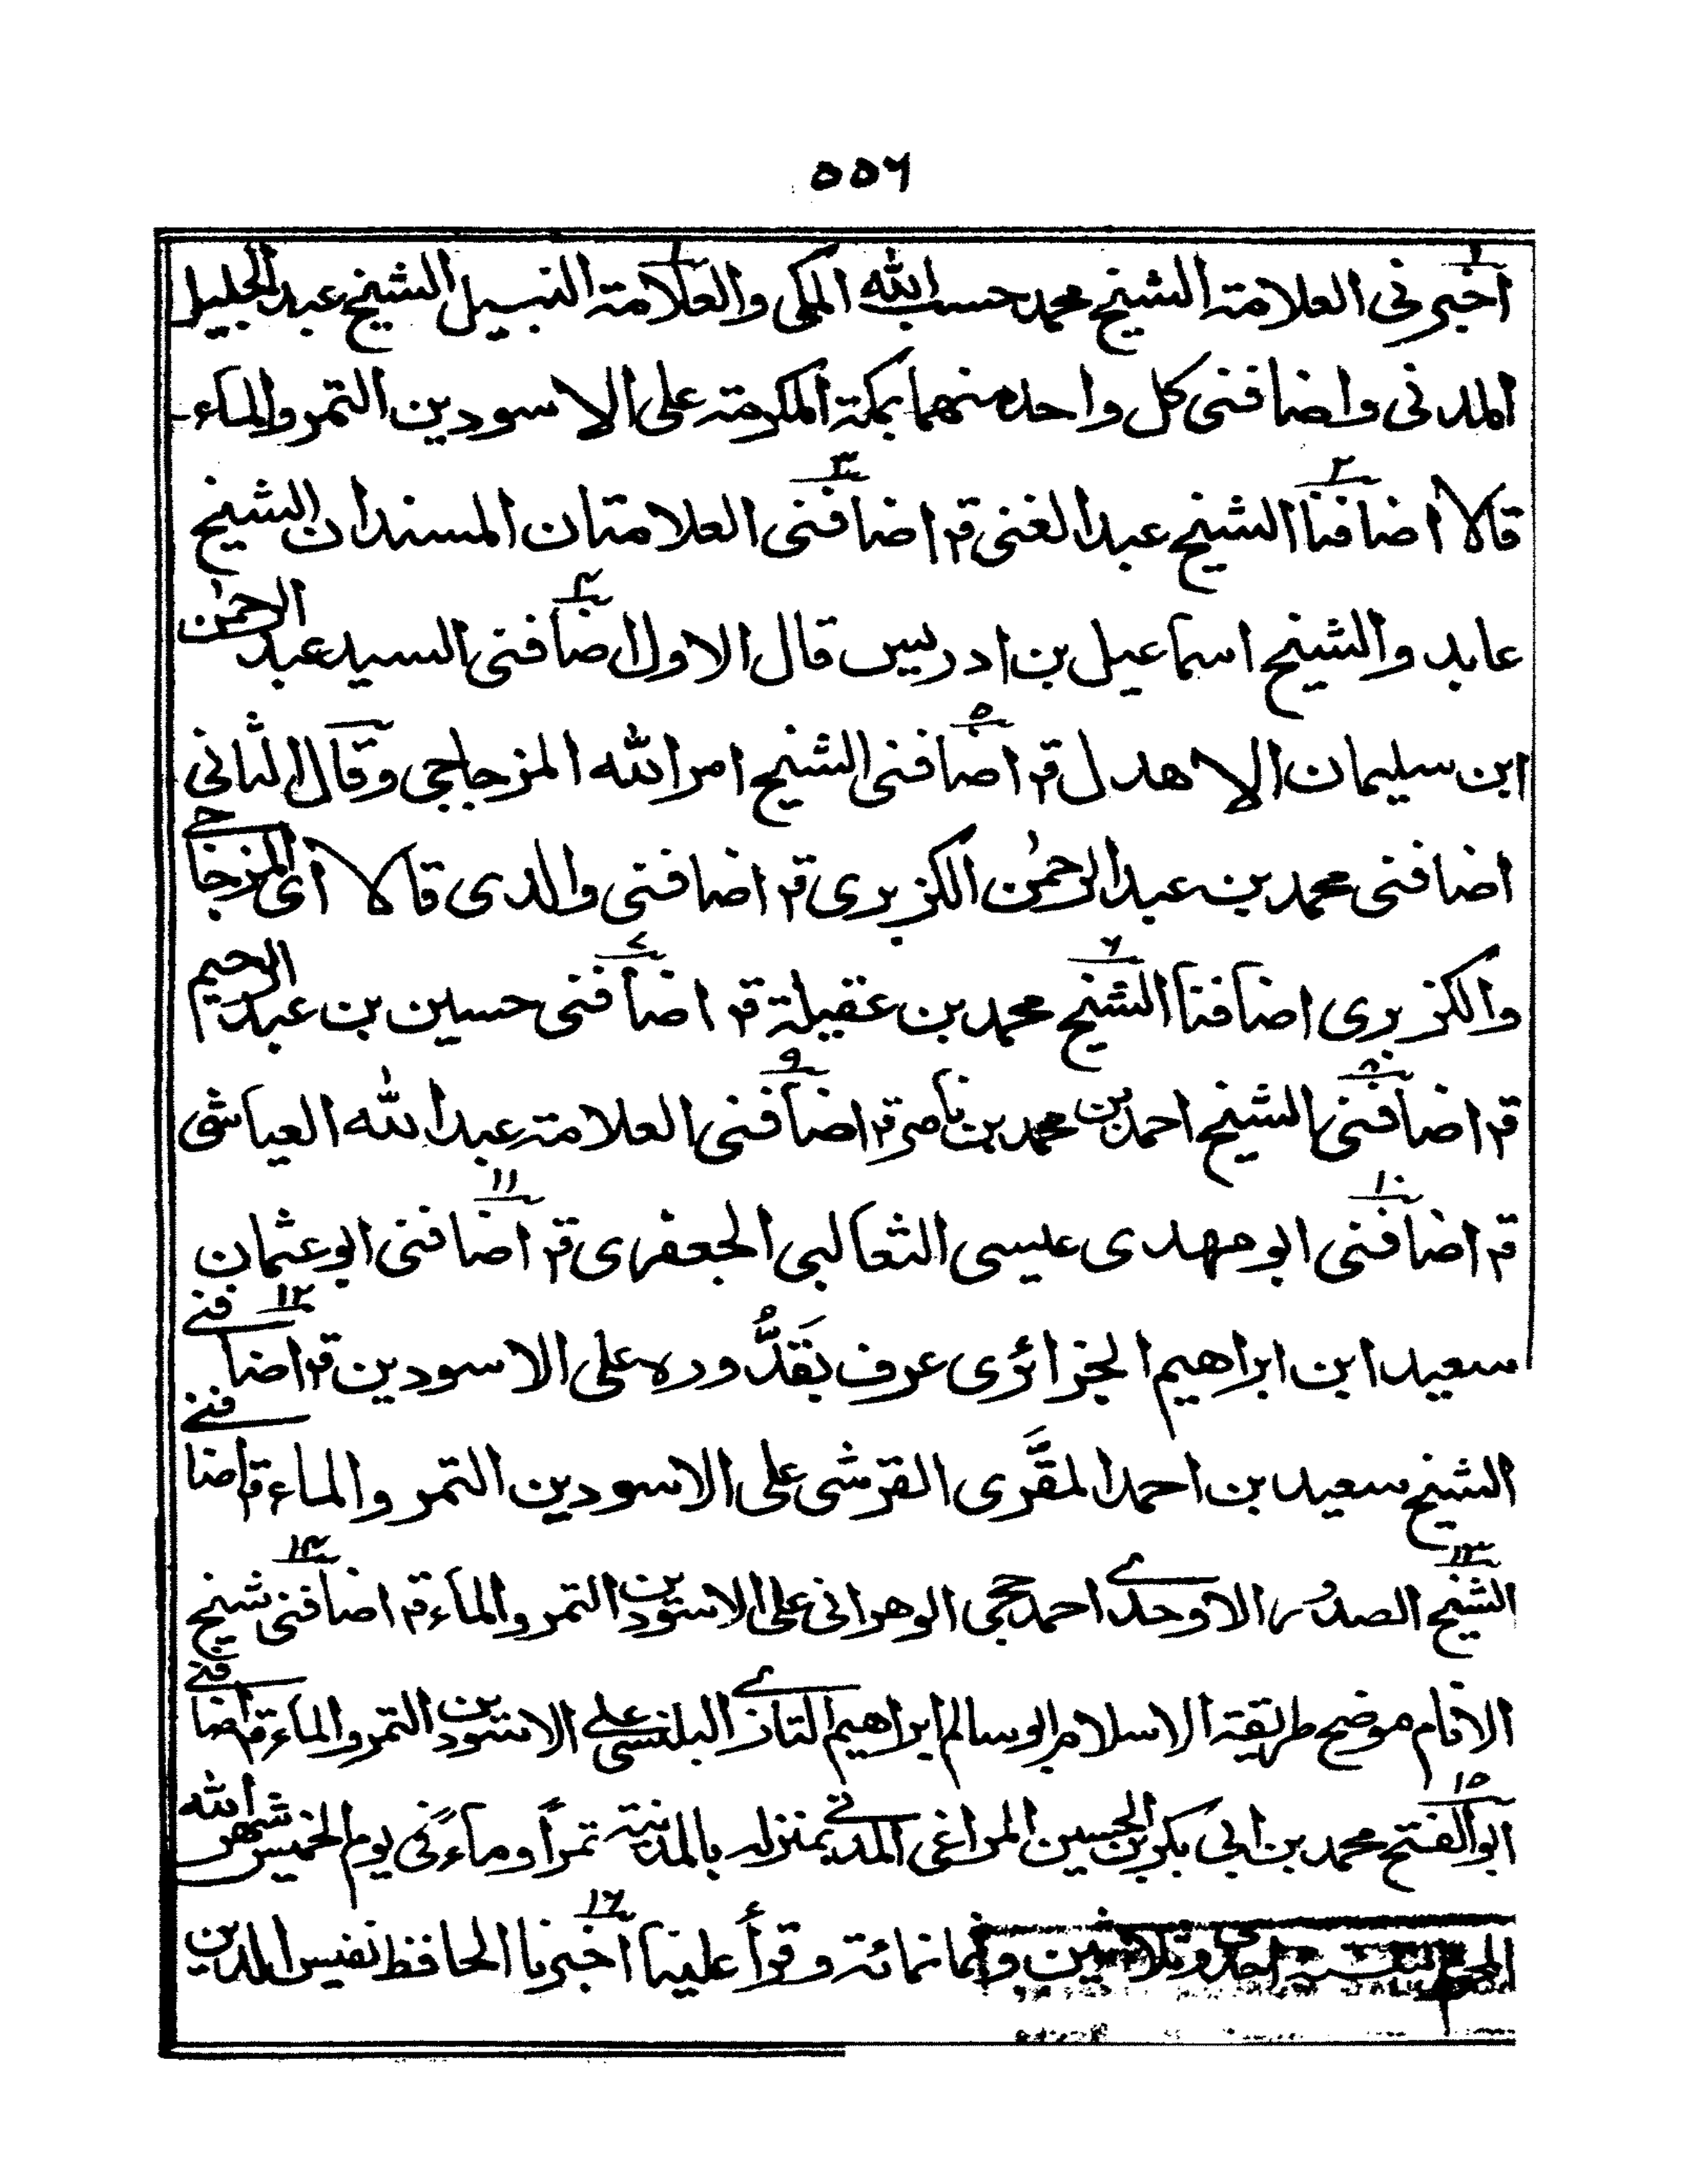 ٥٥٦
اخبرنی العلامة الشیخ محمد حسب الله المکی والعلامة النبیل الشیخ عبد الجلیل
المدنی واضافنی کل واحد منهما بمکة المکرمة علی الاسودین التمر والماء
قالا اضافنا الشیخ عبد الغنی قم اضافنی العلامتان المسندان الشیخ
عابد والشیخ اسماعیل بن ادریس قال الاول اضافنی السید عبد الرحمٰن
ابن سلیمان الاهدل قم اضافنی الشیخ امر الله المزجاجی وقال الثانی
اضافنی محمد بن عبد الرحمٰن الکزبری قم اضافنی والدی قالا ای المزجاجی
والکزبری اضافنا الشیخ محمد بن عقیلة قم اضافنی حسین بن عبد الرحیم
قم اضافنی الشیخ احمد بن محمد بن ناصر قم اضافنی العلامة عبد الله العیاشی
قم اضافنی ابو مهدی عیسی الثعالبی الجعفری قم اضافنی ابو عثمان
سعید ابن ابراهیم الجزائری عرف بقَدُّوره علی الاسودین قم اضافنی
الشیخ سعید بن احمد المقَّری القرشی علی الاسودین التمر والماء قم اضافنی
الشیخ الصدر الاوحدی احمد حجی الوهرانی علی الاسودین التمر والماء قم اضافنی شیخ
الانام موضح طریقة الاسلام ابو سالم ابراهیم التازی البلنسی علی الاسودین التمر والماء قم اضافنی
ابو الفتح محمد بن ابی بکر بن الحسین المراغی المدنی بمنزله بالمدینة تمراً وماءً فی یوم الخمیس شهر الله
المحرم سنة احدی وثلاثین وثمانمائة وقرأ علینا اخبرنا الحافظ نفیس الدین